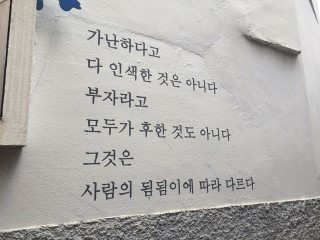 가난하다고
다 인색한 것은 아니다
부자라고
모두가 후한 것도 아니다
그것은
사람의 됨됨이에 따라 다르다